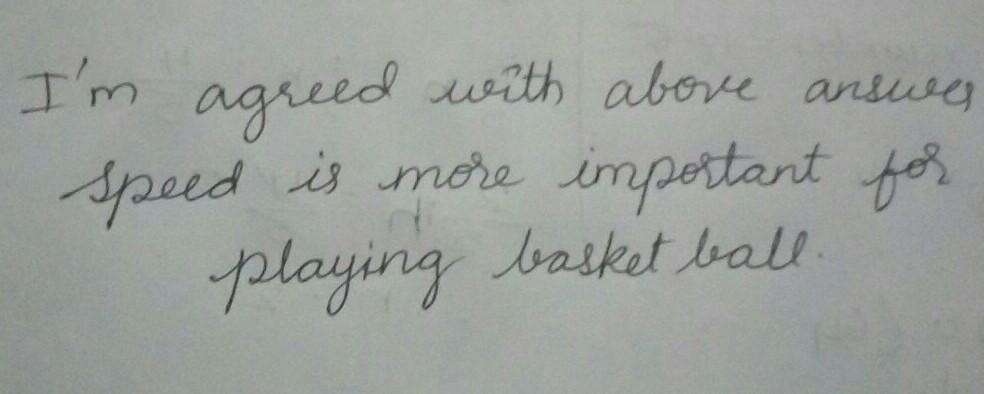 I'm agreed with above answer
speed is more important for
playing basket ball.